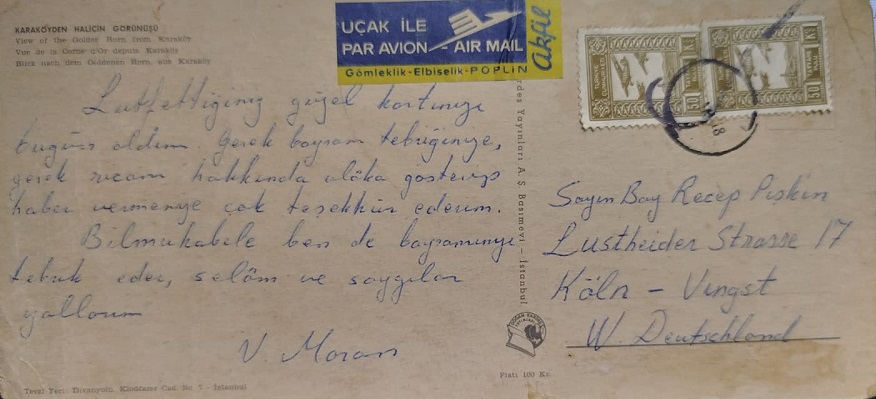 KARAKÖYDEN HALİCİN GÖRÜNÜŞÜ
View of the Golden Horn from Karaköy
Vue de la Corne d'Or depuis Karaköy
Blick nach dem Goldenen Horn aus Karaköy
UÇAK İLE
PAR AVION - AIR MAIL
Gömleklik-Elbiselik-POPLİN
akfil
Lutfettiğiniz güzel kartınızı
bugün aldım. Gerek bayram tebriğinize,
gerek ricam hakkında alâka gösterip
haber vermenize çok teşekkür ederim.
Bilmukabele ben de bayramınızı
tebrik eder, selâm ve saygılar
yollarım
V. Moran
Yayınları A. Ş. Basımevi - İstanbul
50
50
Sayın Bay Recep Pişkin
Lustheider Strasse 17
Köln - Vingst
W. Deutschland
Tevzi Yeri: Divanyolu, Cad. No - İstanbul
Fiatı 100 Kr.